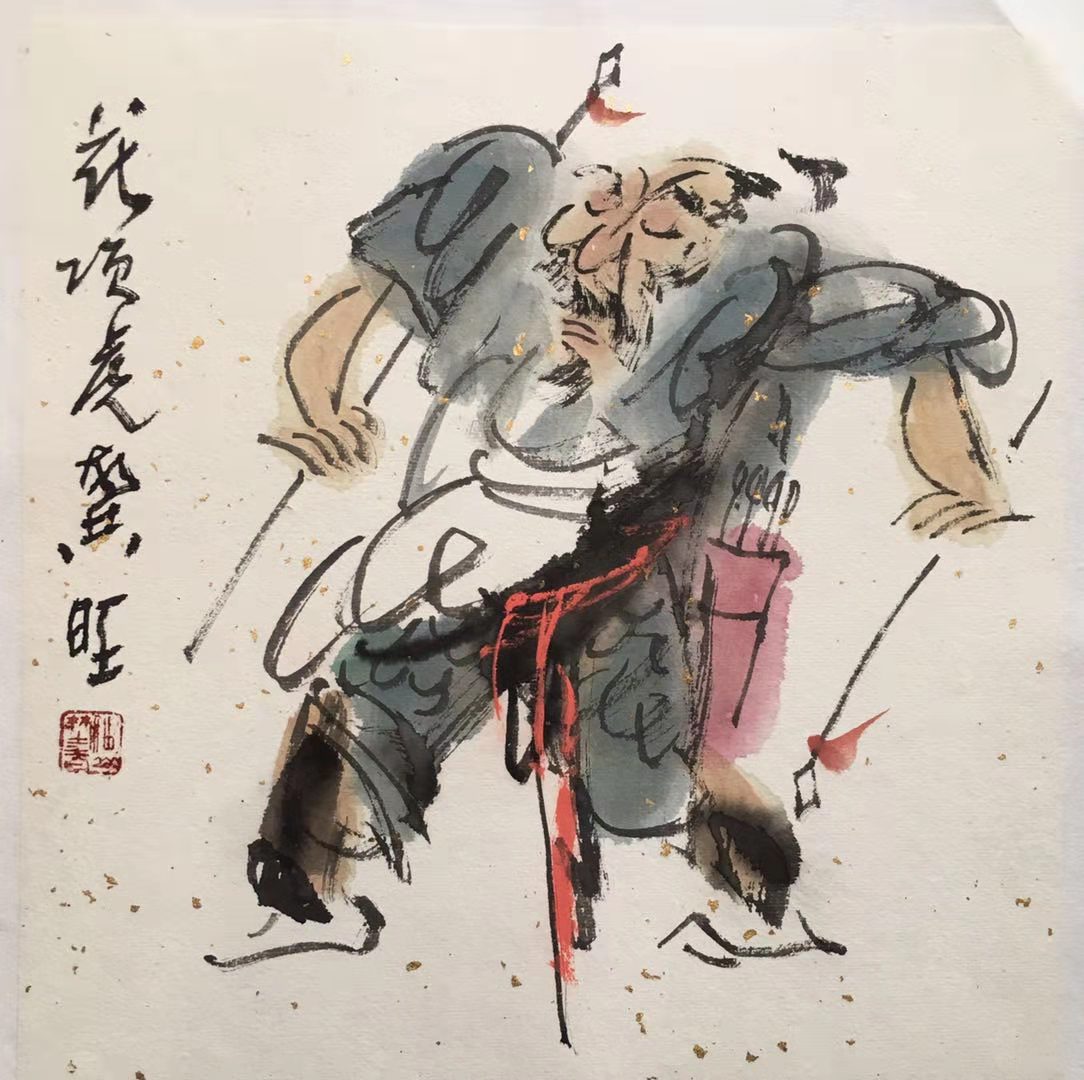 花项虎龚旺